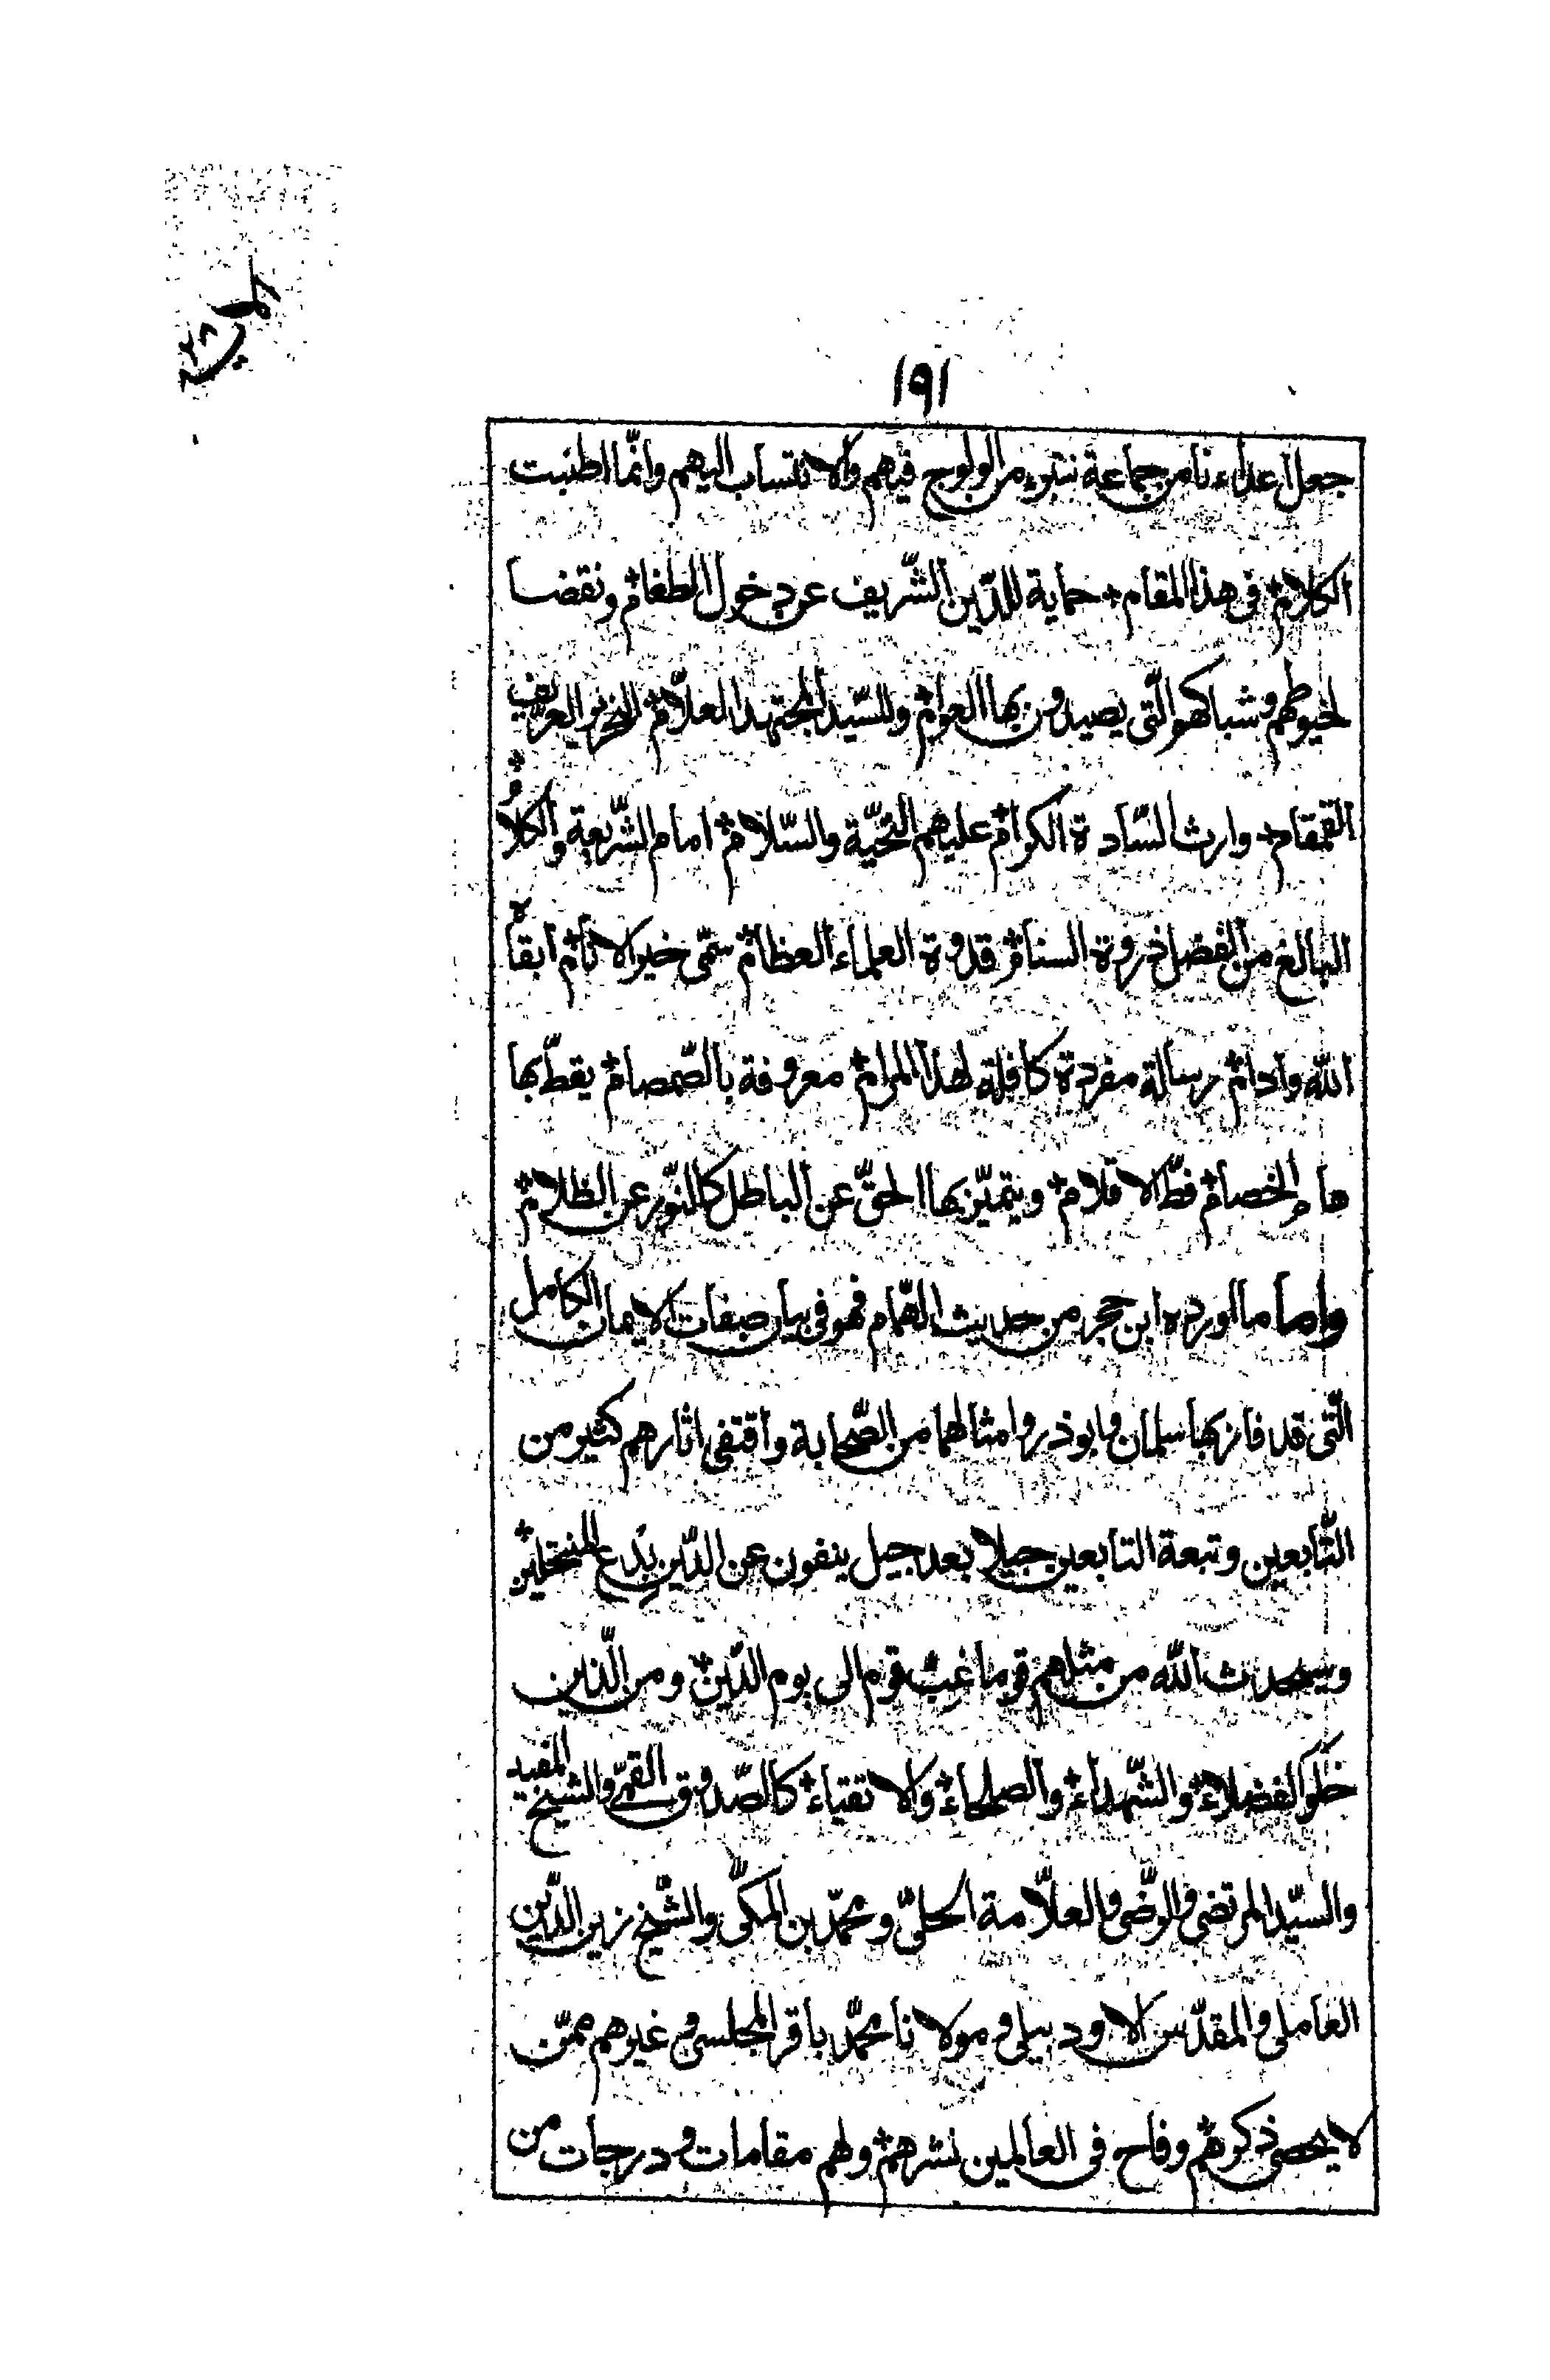 ١٩١
جعل اعداءنا من جماعة نتبرء من الولوج فيهم والانتساب اليهم وانّما اطنبت
الكلام فى هذا المقام حماية للدّين الشّريف عن دخول الطغام ونقضا
لخيوطهم وشباكهم الّتى يصيدون بها العوام وللسّيد المجتهد العلّام النحرير العريف
القمقام وارث السّادة الكرام عليهم التّحيّة والسّلام امام الشّريعة والكلام
البالغ من الفضل ذروة السنام قدوة العلماء العظام سمّى خير الانام ابقاه
اللّه وادام رسالة مفردة كافلة لهذا المرام معروفة بالصّمصام يقطّ بها
هام الخصام قطّ الاقلام ويتميّز بها الحقّ عن الباطل كالنّور عن الظلام
واما ما اورده ابن حجر من حديث الهّمام فهو فى بيان صفات الايمان الكامل
الّتى قد فاز بها سلمان وابوذر وامثالهما من الصّحابة واقتفى اثارهم كثير من
التّابعين وتبعة التابعين جيلا بعد جيل ينفون عن الدّين بِدَع المنتحلين
وسيحدث اللّه من مثلهم قوما غبّ قوم الى يوم الدّين ومن الّذين
خلَوا الفضلاء والشّهداء والصلحاء والاتقياء كالصّدوق القمّى والشيخ المفيد
والسّيد المرتضى والرّضى والعلّامة الحلىّ ومحمّد بن المكّى والشّيخ زين الدّين
العاملى والمقدّس الاردبيلى ومولانا محمّد باقر المجلسى وغيرهم ممّن
لا يحصى ذكرهم وفاح فى العالمين نشرهم ولهم مقامات ودرجات من